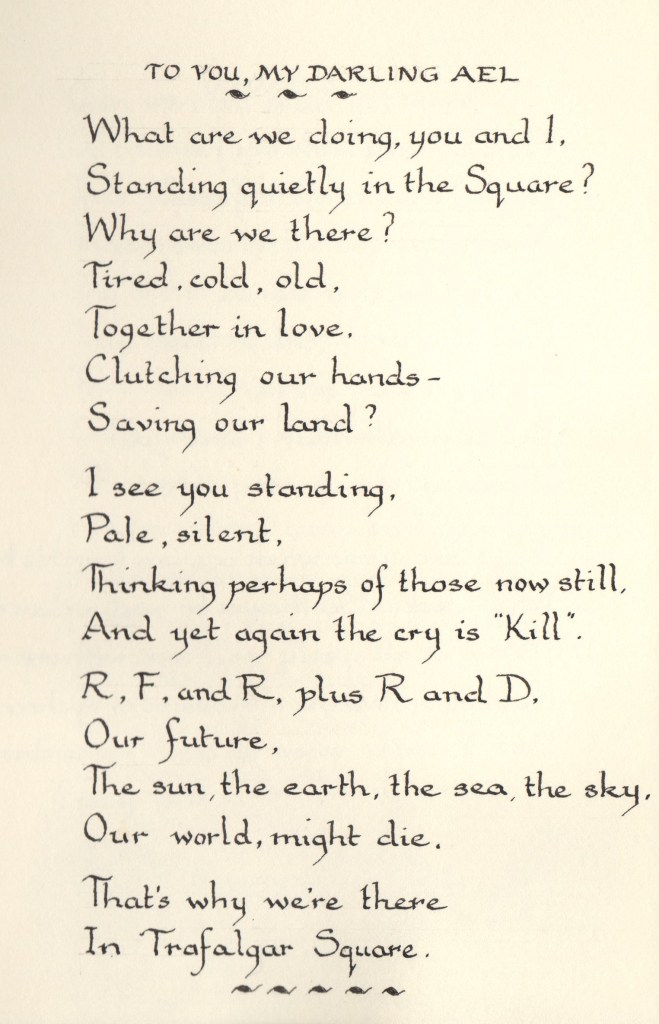 TO YOU, MY DARLING AEL
What are we doing, you and I,
Standing quietly in the Square?
Why are we there?
Tired, cold, old,
Together in love.
Clutching our hands-
Saving our land?
I see you standing,
Pale, silent,
Thinking perhaps of those now still,
And yet again the cry is "Kill".
R, F, and R, plus R and D,
Our future,
The sun, the earth, the sea, the sky,
Our world, might die.
That's why we're there
In Trafalgar Square.